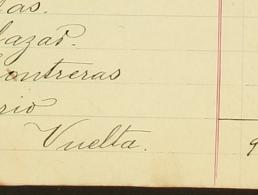 las.
lazar.
Contreras
rio
Vuelta.
9